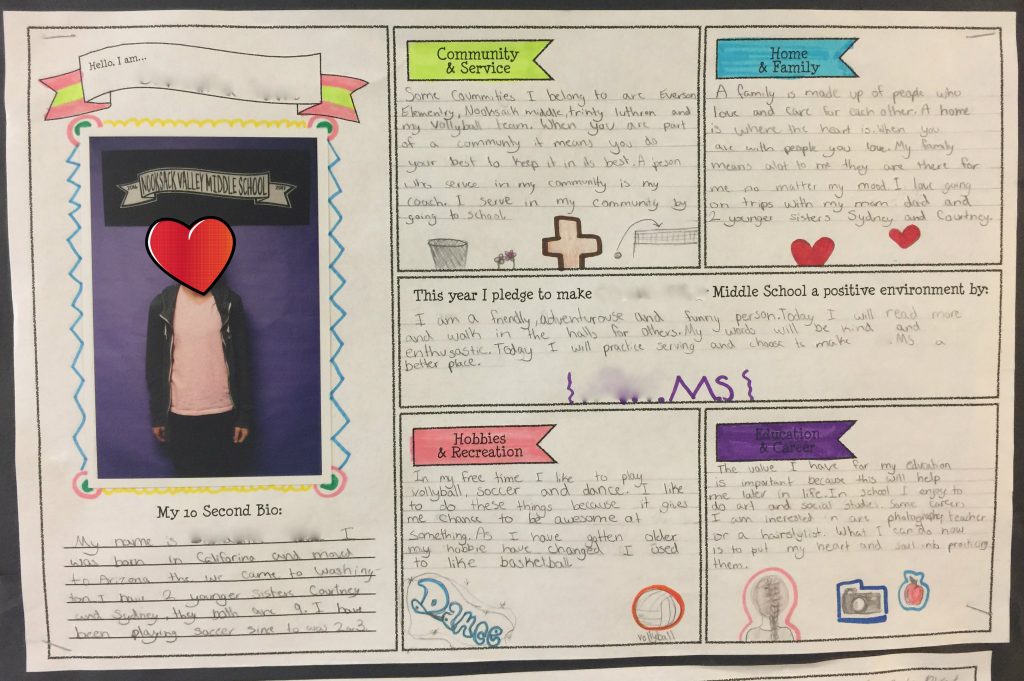 Hello, I am...
2016 NOOKSACK VALLEY MIDDLE SCHOOL 2017
My 10 Second Bio:
My name is I
was born in Califarina and moved
to Arizona the we came to Washing-
ton. I have 2 younger sisters Courtney
and Sydney, they both are 9. I have
been playing soccer sine to was 2or3.
Community
& Service
Some Coummities I belong to are Everson
Elementry, Nooksack middle, trinty luthron and
my vollyball team. When you are part
of a community it means you do
your best to keep it in its best. A person
who serve in my community is my
coach. I serve in my community by
going to school.
Home
& Family
A family is made up of people who
love and care for each other. A home
is where the heart is. When you
are with people you love. My family
means alot to me they are there for
me no matter my mood. I love going
on trips with my mom dad and
2 younger sisters Sydney and Courtney.
This year I pledge to make Middle School a positive environment by:
I am a friendly, adventurouse and funny person. Today I will read more
and walk in the halls for others. My words will be kind and
enthugastic. Today I will practice serving and choose to make MS a
better place.
{ .MS }
Hobbies
& Recreation
In my free time I like to play
vollyball, soccer and dance. I like
to do these things because it gives
me chance to be awesome at
something. As I have gotten older
my hobbie have changed I used
to like basketball.
Dance
vollyball
Education
& Career
The value I have for my education
is important because this will help
me later in life. In school I enjoy to
do art and social studies. Some careers
I am interested n are photography, teacher
or a hairstylist. What I can do now
is to put my heart and soul into practicing
them.